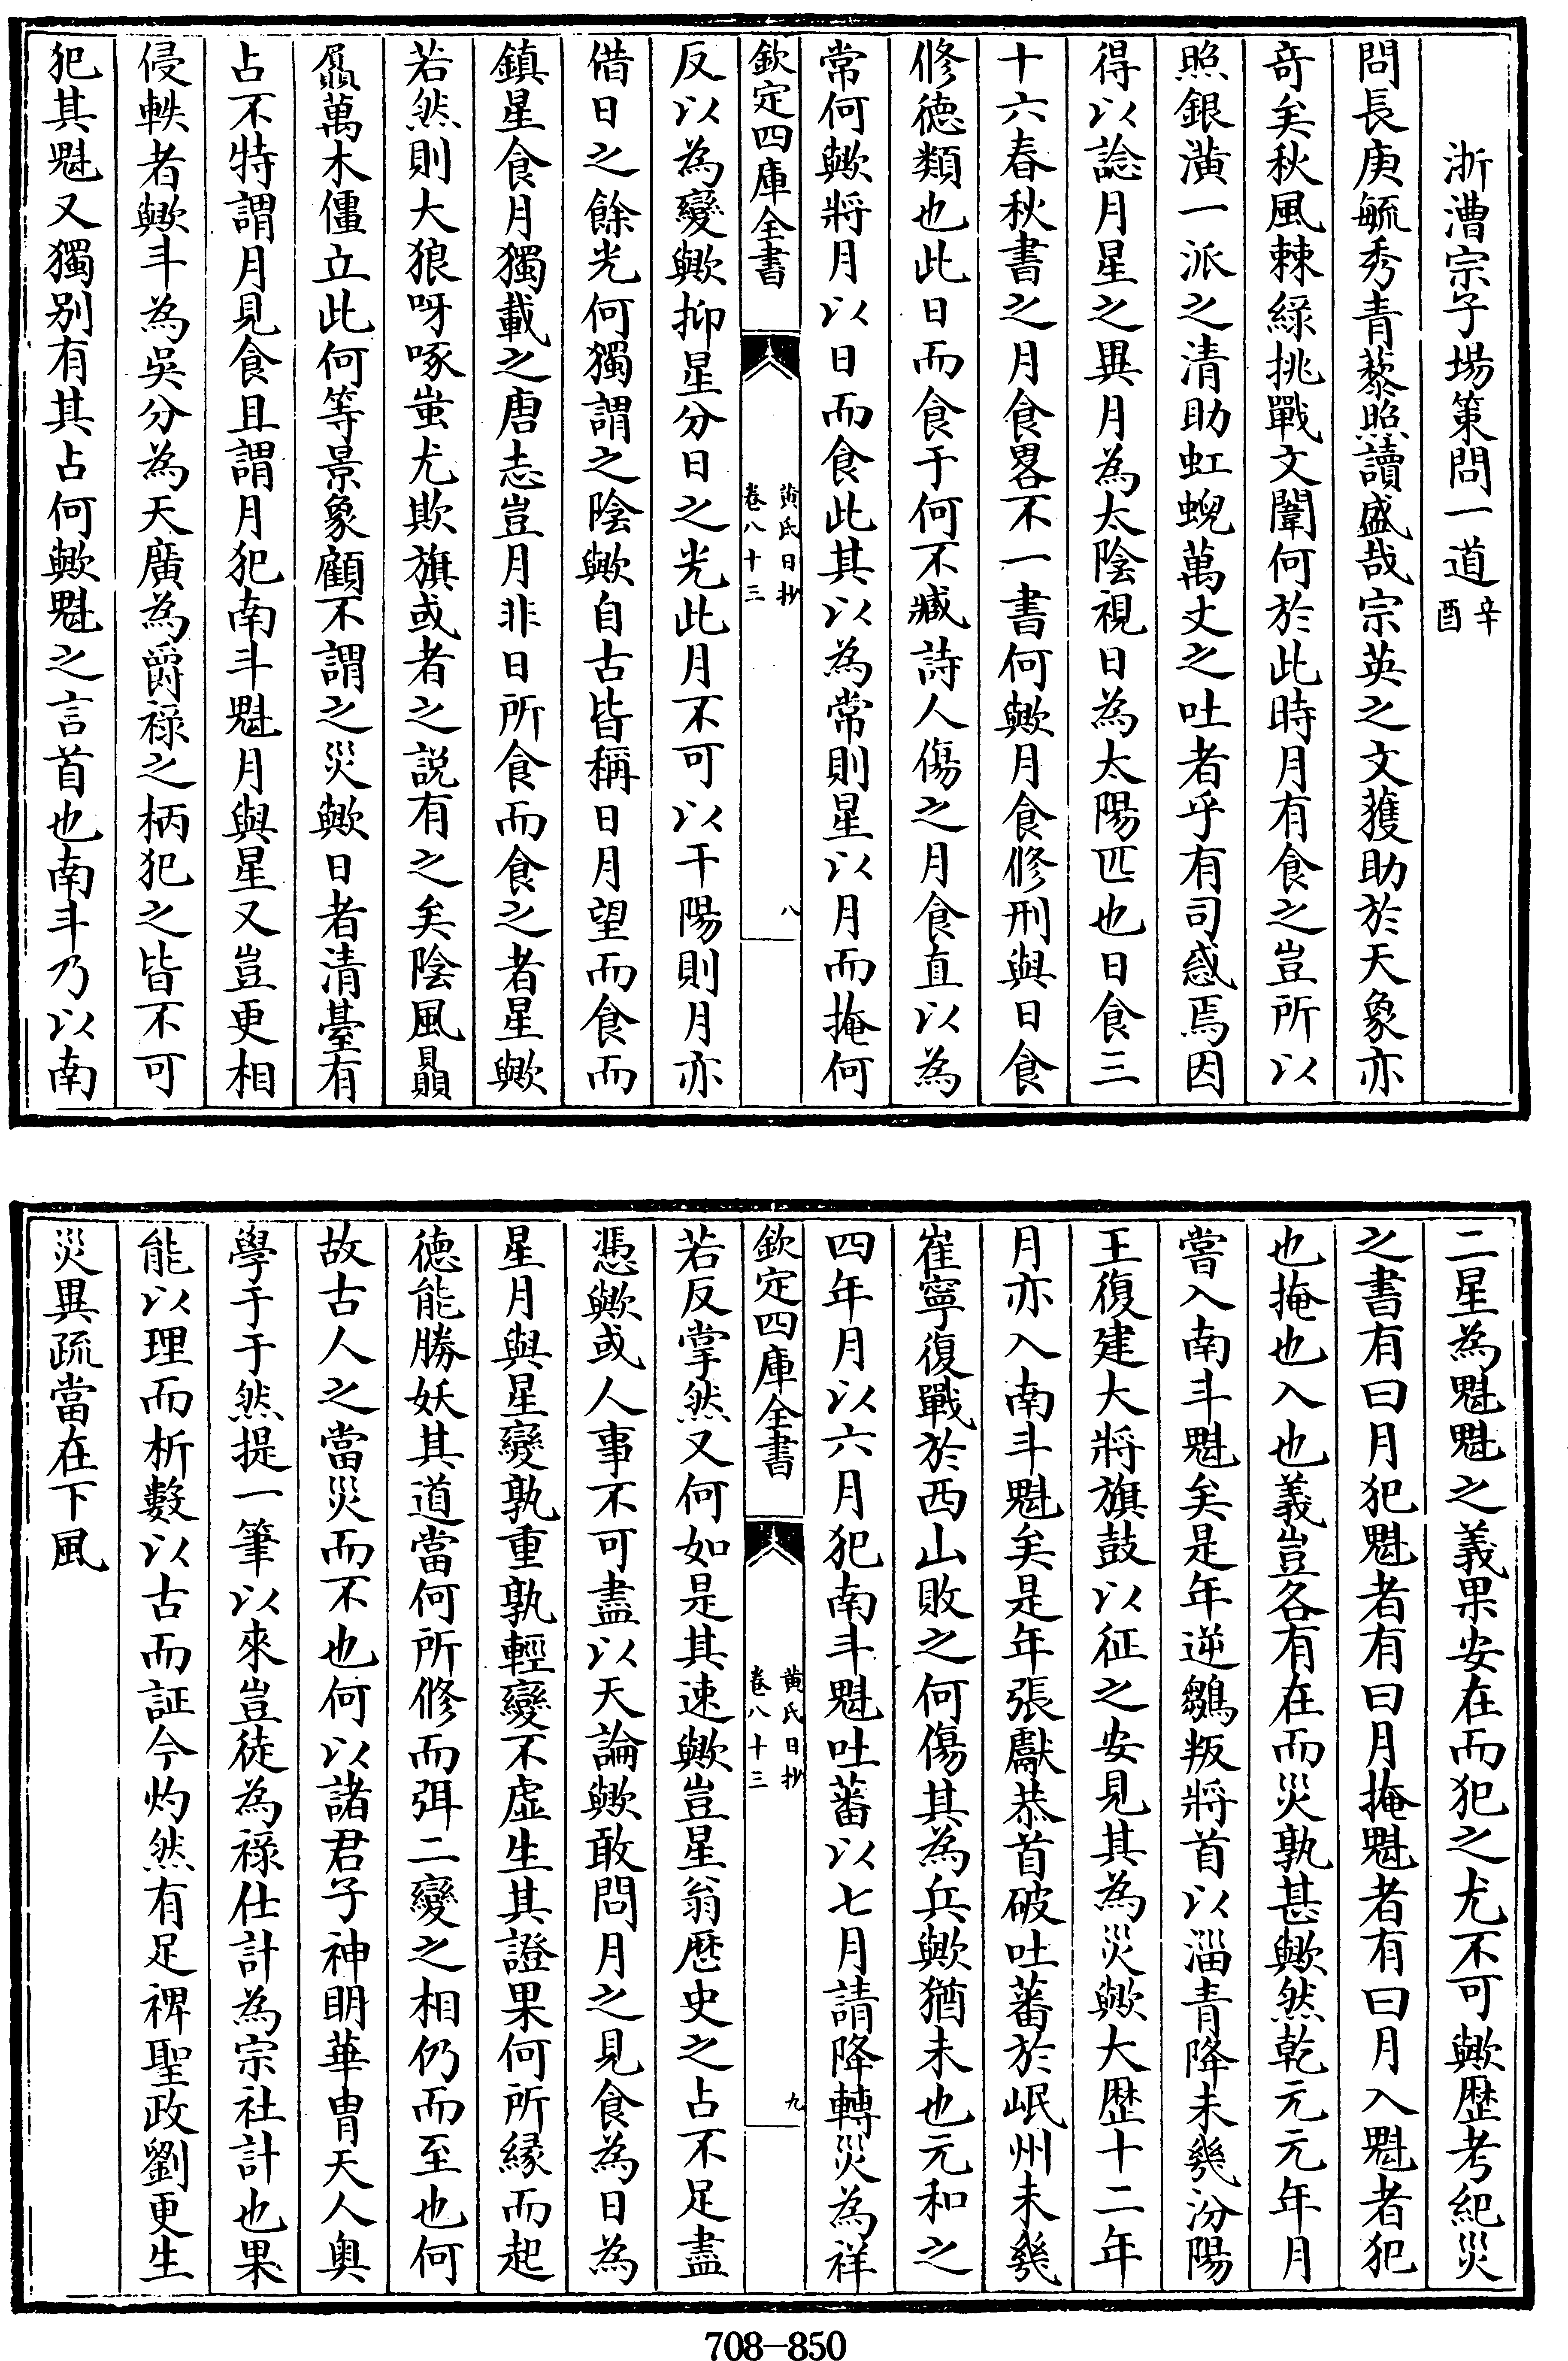 浙漕宗子場策問一道辛酉
問長庚毓秀青藜照讀盛哉宗英之文獲助於天象亦
竒矣秋風棘綵挑戰文闈何於此時月有食之豈所以
照銀潢一派之清助虹蜺萬丈之吐者乎有司惑焉因
得以諗月星之異月為太陰視日為太陽匹也日食三
十六春秋書之月食畧不一書何歟月食修刑與日食
修德類也此日而食于何不臧詩人傷之月食直以為
常何歟將月以日而食此其以為常則星以月而掩何
欽定四庫全書
黄氏日抄
卷八十三
八
反以為變歟抑星分日之光此月不可以干陽則月亦
借日之餘光何獨謂之陰歟自古皆稱日月望而食而
鎮星食月獨載之唐志豈月非日所食而食之者星歟
若然則大狼呀啄蚩尤欺旗或者之説有之矣陰風贔
屭萬木僵立此何等景象顧不謂之災歟日者清臺有
占不特謂月見食且謂月犯南斗魁月與星又豈更相
侵軼者歟斗為吳分為天廣為爵禄之柄犯之皆不可
犯其魁又獨别有其占何歟魁之言首也南斗乃以南
二星為魁魁之義果安在而犯之尤不可歟歴考紀災
之書有曰月犯魁者有曰月掩魁者有曰月入魁者犯
也掩也入也義豈各有在而災孰甚歟然乾元元年月
嘗入南斗魁矣是年逆雛叛將首以淄青降未幾汾陽
王復建大將旗鼓以征之安見其為災歟大歴十二年
月亦入南斗魁矣是年張獻恭首破吐蕃於岷州未幾
崔寧復戰於西山敗之何傷其為兵歟猶未也元和之
四年月以六月犯南斗魁吐蕃以七月請降轉災為祥
欽定四庫全書
黄氏日抄
卷八十三
九
若反掌然又何如是其速歟豈星翁歴史之占不足盡
憑歟或人事不可盡以天論歟敢問月之見食為日為
星月與星變孰重孰輕變不虛生其證果何所緣而起
德能勝妖其道當何所修而弭二變之相仍而至也何
故古人之當災而不也何以諸君子神明華胄天人奥
學于于然提一筆以來豈徒為禄仕計為宗社計也果
能以理而析數以古而証今灼然有足裨聖政劉更生
災異疏當在下風
708-850